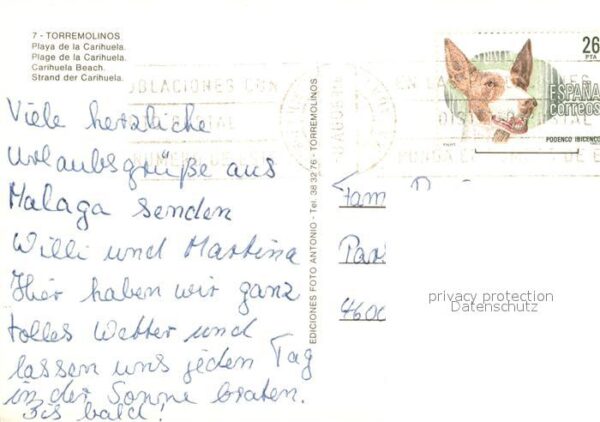 7 - TORREMOLINOS
Playa de la Carihuela.
Plage de la Carihuela.
Carihuela Beach.
Strand der Carihuela.
Viele herzliche
Urlaubsgrüße aus
Malaga senden
Willi und Martina
Hier haben wir ganz
tolles Wetter und
lassen uns jeden Tag
in der Sonne braten.
Bis bald!
EDICIONES FOTO ANTONIO - Tel. 38 32 76 - TORREMOLINOS
OBLACIONES CON
EN LA
26
PTA
ESPAÑA
correos
PODENCO IBICENCO
Fam
Par
4600
privacy protection
Datenschutz